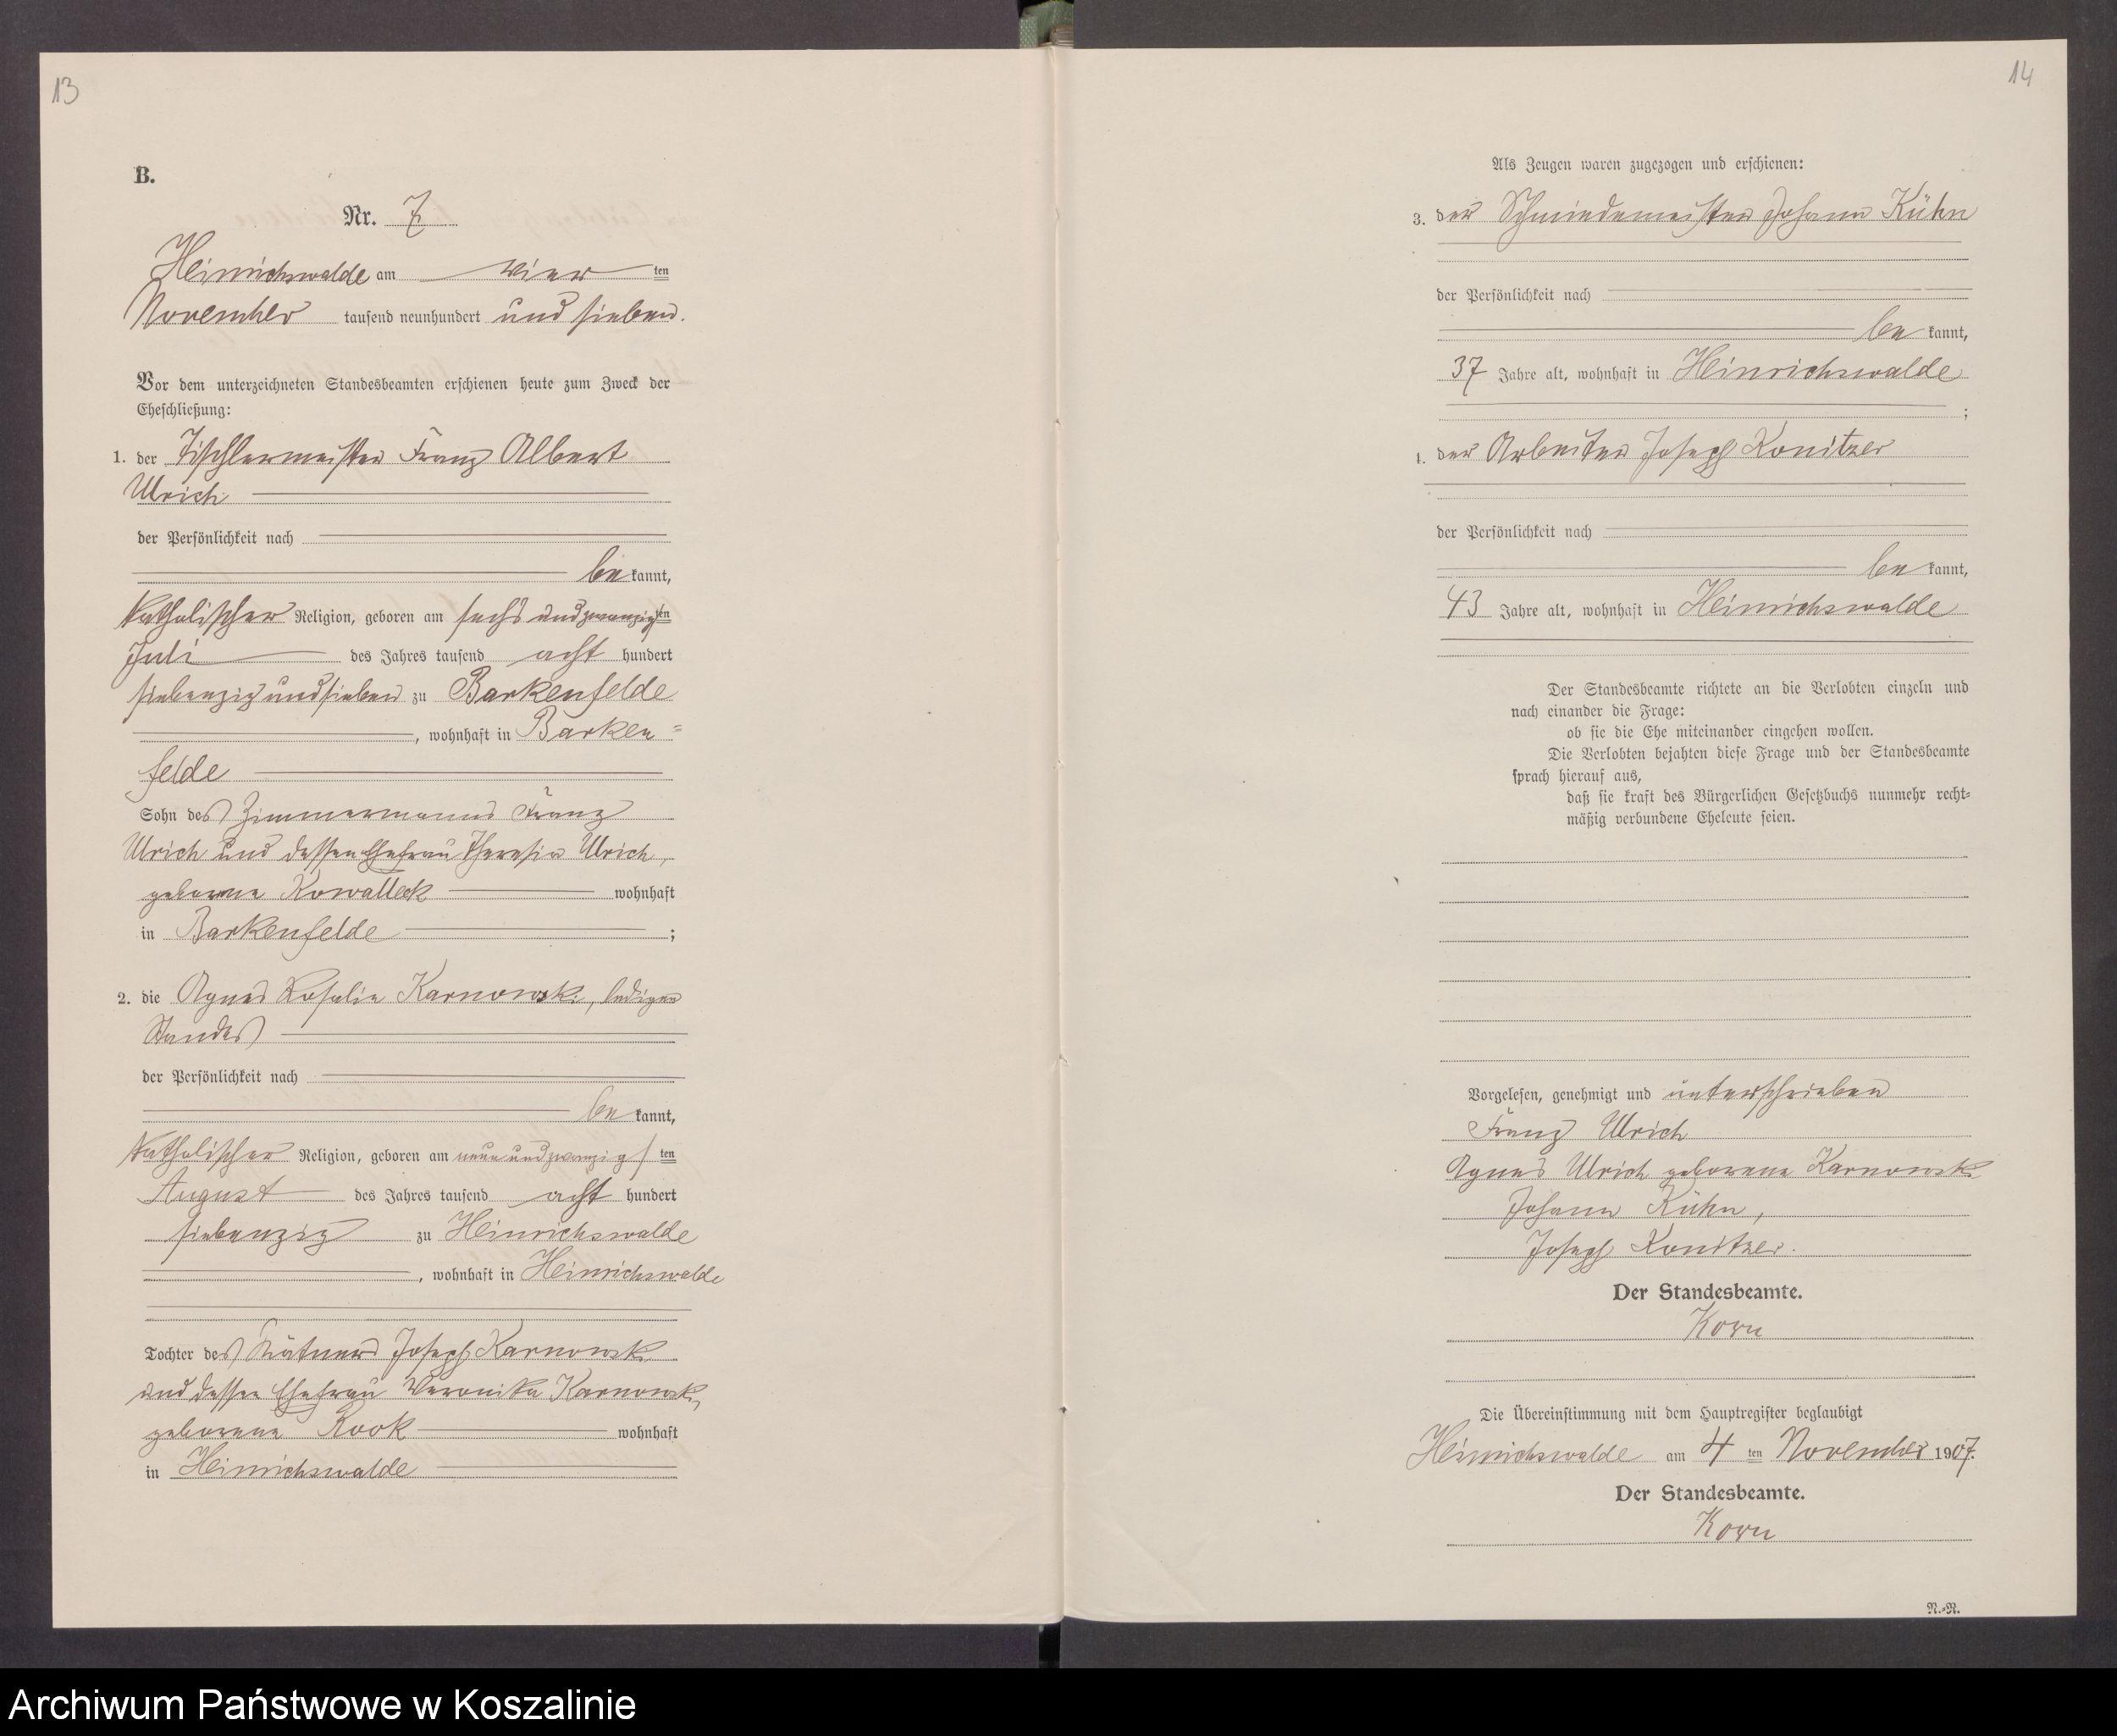 13
B.
Nr. 7
Heinrichswalde am vier ten
November tausend neunhundert und sieben.
Vor dem unterzeichneten Standesbeamten erschienen heute zum Zweck der
Eheschließung:
1. der Tischlermeister Franz Albert
Ulrich
der Persönlichkeit nach
be kannt,
katholischer Religion, geboren am sechs und zwanzigsten
Juli des Jahres tausend acht hundert
siebenzig und sieben zu Barkenfelde
, wohnhaft in Barken=
felde
Sohn des Zimmermanns Franz
Ulrich und dessen Ehefrau Theresia Ulrich,
geborene Kowalleck wohnhaft
in Barkenfelde ;
2. die Agnes Rosalie Karnowski, ledigen
Standes
der Persönlichkeit nach
be kannt,
katholischer Religion, geboren am neun und zwanzigs ten
August des Jahres tausend acht hundert
siebenzig zu Heinrichswalde
, wohnhaft in Heinrichswalde
Tochter des Kätners Joseph Karnowski
und dessen Ehefrau Veronika Karnowski,
geborene Rook wohnhaft
in Heinrichswalde
14
Als Zeugen waren zugezogen und erschienen:
3. der Schmiedemeister Johann Kühn
der Persönlichkeit nach
be kannt,
37 Jahre alt, wohnhaft in Heinrichswalde
;
4. der Arbeiter Joseph Konitzer
der Persönlichkeit nach
be kannt,
43 Jahre alt, wohnhaft in Heinrichswalde
Der Standesbeamte richtete an die Verlobten einzeln und
nach einander die Frage:
ob sie die Ehe miteinander eingehen wollen.
Die Verlobten bejahten diese Frage und der Standesbeamte
sprach hierauf aus,
daß sie kraft des Bürgerlichen Gesetzbuchs nunmehr recht=
mäßig verbundene Eheleute seien.
Vorgelesen, genehmigt und unterschrieben
Franz Ulrich
Agnes Ulrich geborene Karnowski
Johann Kühn,
Joseph Konitzer.
Der Standesbeamte.
Korn
Die Übereinstimmung mit dem Hauptregister beglaubigt
Heinrichswalde am 4 ten November 1907.
Der Standesbeamte.
Korn
N.-R.
Archiwum Państwowe w Koszalinie